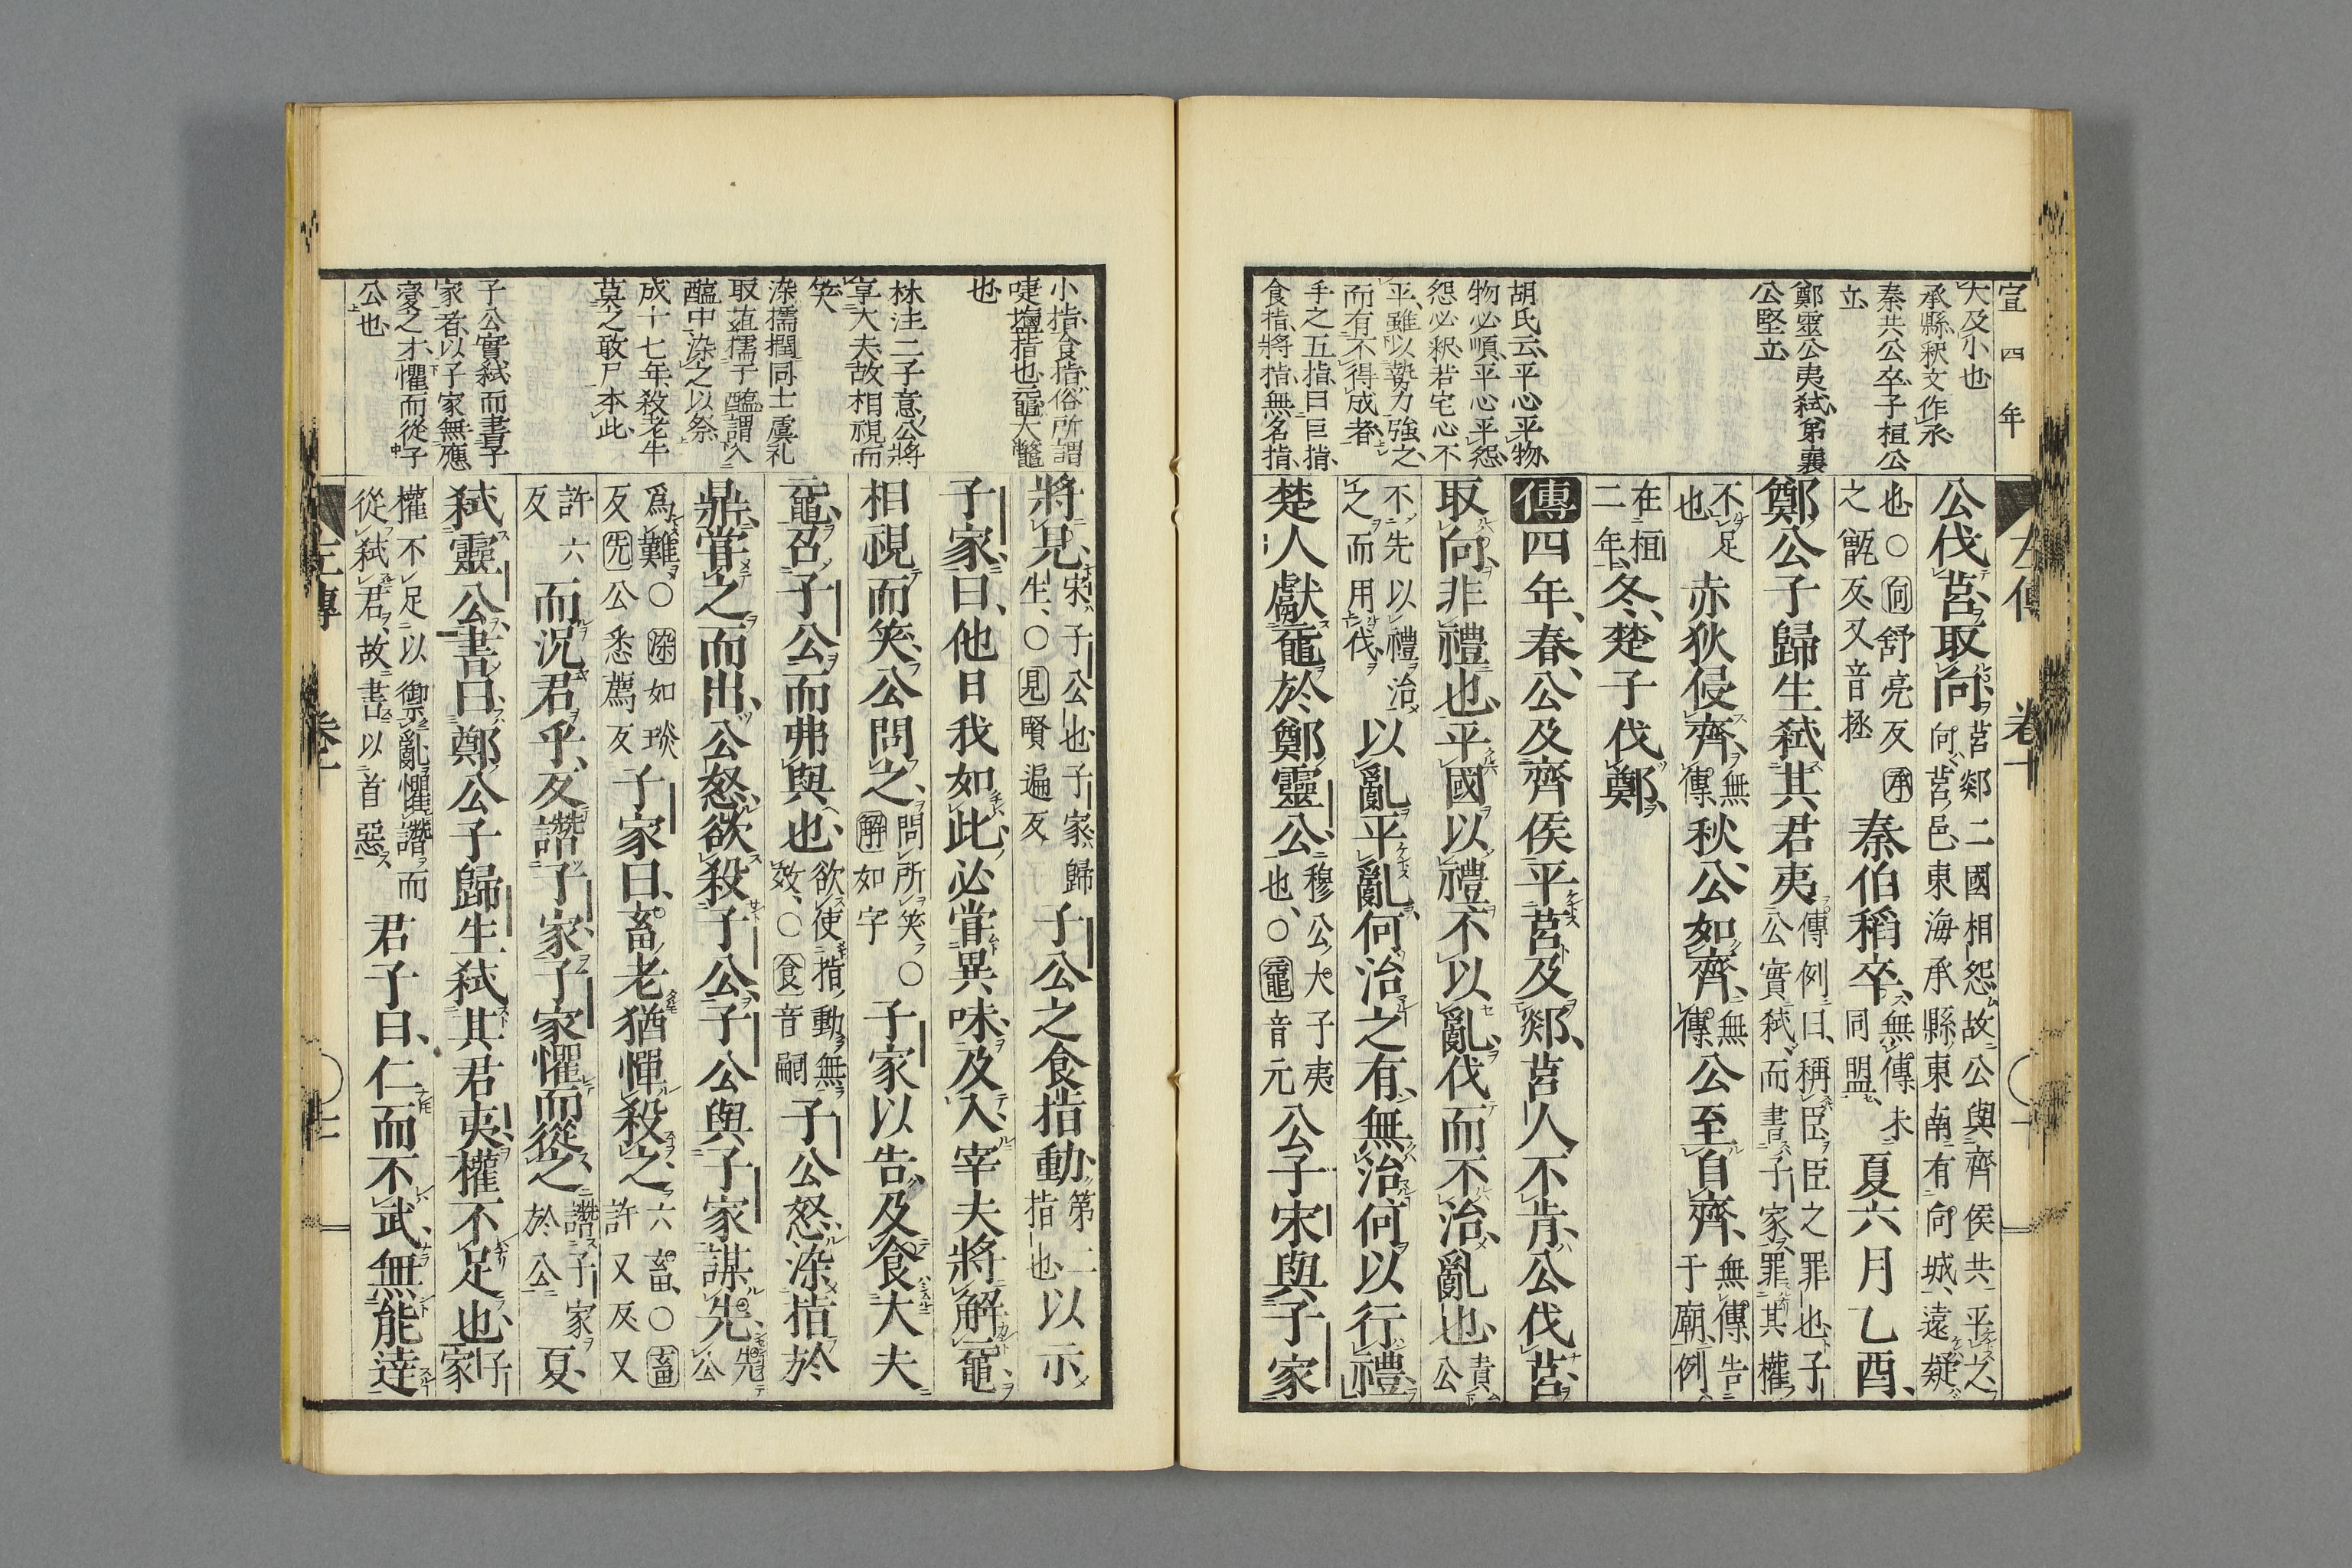 宣四年
大及小也
承縣釈文作氶
秦共公卒子桓公
立
鄭靈公夷弑弟襄
公堅立
胡氏云平心平物
物必順平心平怨
怨必釈若宅心不
平雖以勢力強之
而有不得成者
手之五指曰巨指
食指將指無名指
左傳 卷十
公伐莒取向莒郯二國相怨故公與齊侯共平之向莒邑東海承縣東南有向城遠疑
也○向舒亮反承之甑反又音拯秦伯稻卒無傳未同盟夏六月乙酉
鄭公子歸生弑其君夷傳例曰稱臣臣之罪也子公實弑而書子家罪其權
不足也赤狄侵齊無傳秋公如齊無傳公至自齊無傳告于廟例
在桓二年冬楚子伐鄭
傳四年春公及齊侯平莒及郯莒人不肯公伐莒
取向非禮也平國以禮不以亂伐而不治亂也責公
不先以禮治之而用伐以亂平亂何治之有無治何以行禮
楚人獻黿於鄭靈公穆公大子夷也○黿音元公子宋與子家
小指食指俗所謂
啑鹽指也黿大鼈
也
林注二子意公將
享大夫故相視而
笑
染擩撋同士虞礼
取菹擩于醢謂入
醢中染之以祭
成十七年殺老牛
莫之敢尸本此
子公實弑而書子
家者以子家無應
變之才懼而從子
公也
將見宋子公也子家歸生○見賢遍反子公之食指動第二指也以示
子家曰他日我如此必嘗異味及入宰夫將解黿
相視而笑公問之問所笑○解如字子家以告及食大夫
黿召子公而弗與也欲使指動無效○食音嗣子公怒染指於
鼎嘗之而出公怒欲殺子公子公與子家謀先先公
爲難○染如琰反兂公悉薦反子家曰畜老猶憚殺之六畜○畜許又反又
許六反而況君乎反譖子家子家懼而從之譖子家於公夏
弑靈公書曰鄭公子歸生弑其君夷權不足也子家
權不足以禦亂懼譖而從弑君故書以首惡君子曰仁而不武無能達
左傳 卷十